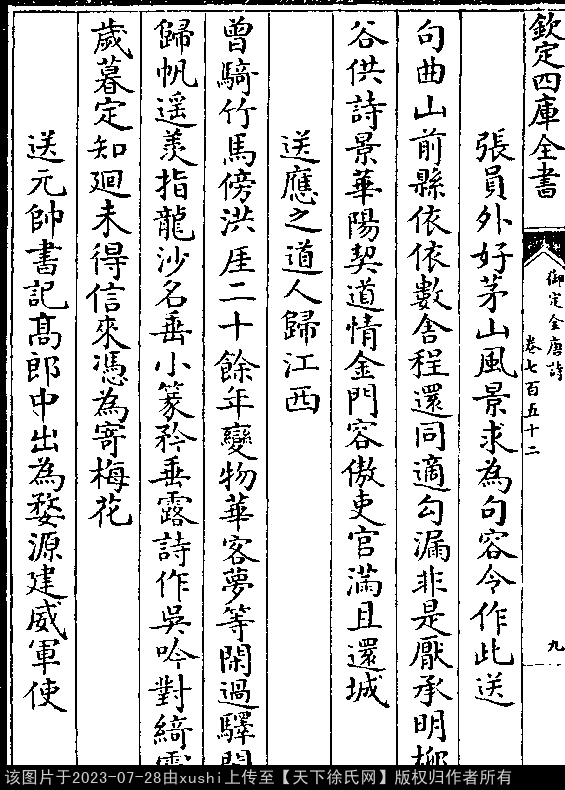 欽定四庫全書
御定全唐詩
卷七百五十二
九
張員外好茅山風景求為句容令作此送
句曲山前縣依依數舍程還同適勾漏非是厭承明柳
谷供詩景華陽契道情金門容傲吏官滿且還城
送應之道人歸江西
曾騎竹馬傍洪厓二十餘年變物華客夢等閑過驛
歸帆遥羨指龍沙名垂小篆矜垂露詩作吳吟對綺
歲暮定知迴未得信來憑為寄梅花
送元帥書記髙郎中出為婺源建威軍使
该图片于2023-07-28由xushi上传至【天下徐氏网】版权归作者所有